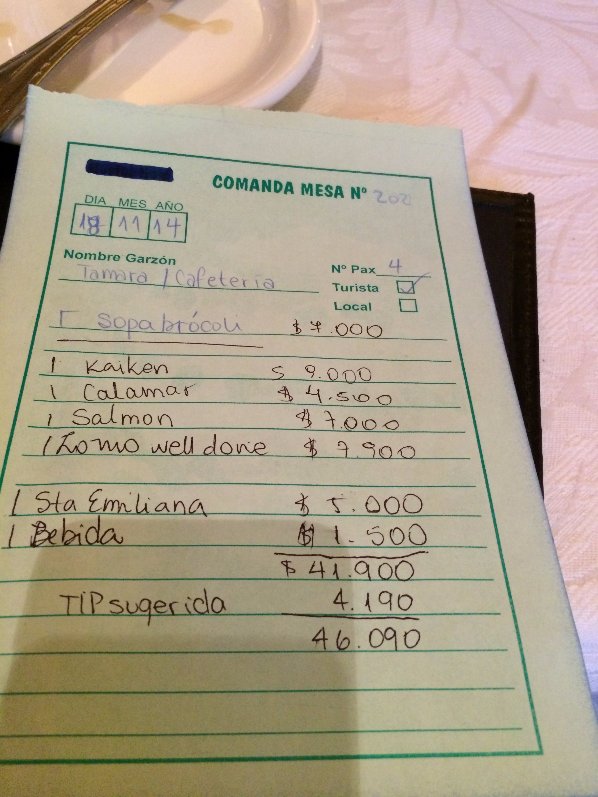 COMANDA MESA Nº 202
DIA MES AÑO
18 11 14
Nombre Garzón
Tamara / Cafeteria
Nº Pax 4
Turista
Local
1 Sopa brócoli $ 7.000
1 Kaiken $ 9.000
1 Calamar $ 4.500
1 Salmon $ 7.000
1 Lomo well done $ 7.900
1 Sta Emiliana $ 5.000
1 Bebida $ 1.500
$ 41.900
TIP sugerida 4.190
46.090